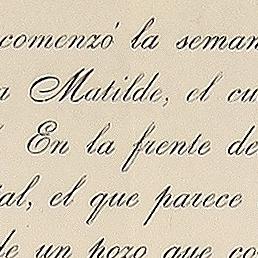 comenzó la seman
a Matilde, el cu
En la frente de
al, el que parece
de un pozo que co